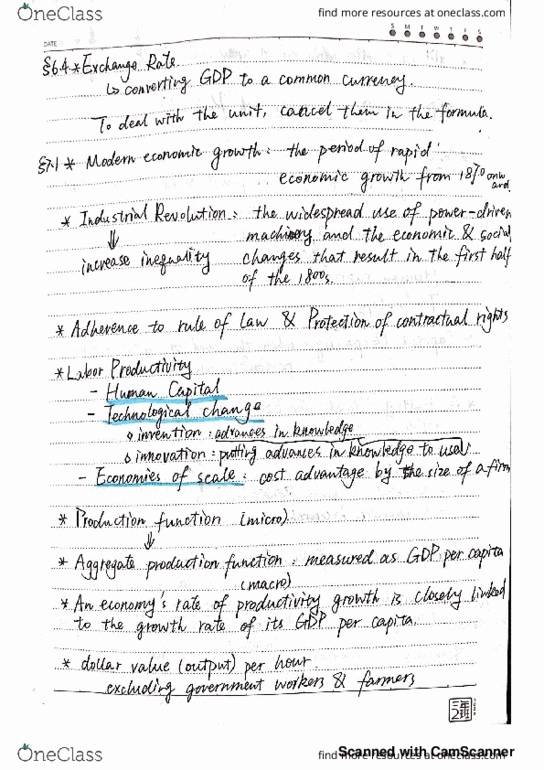 OneClass
find more resources at oneclass.com
S M T W T F S
DATE
§6.4 * Exchange Rate
↳ converting GDP to a common currency.
To deal with the unit, cancel them in the formula.
§7.1 * Modern economic growth: the period of rapid
economic growth from 1870 onward
* Industrial Revolution: the widespread use of power-driven
↓ machinery and the economic & social
increase inequality changes that result in the first half
of the 1800s.
* Adherence to rule of law & Protection of contractual rights
* Labor Productivity
- Human Capital
- Technological change
◊ invention: advances in knowledge
◊ innovation: putting advances in knowledge to use
- Economies of scale: cost advantage by the size of a firm
* Production function (micro)
↓
* Aggregate production function: measured as GDP per capita
(macro)
* An economy's rate of productivity growth is closely linked
to the growth rate of its GDP per capita.
* dollar value (output) per hour.
excluding government workers & farmers
OneClass
find more resources at oneclass.com
Scanned with CamScanner